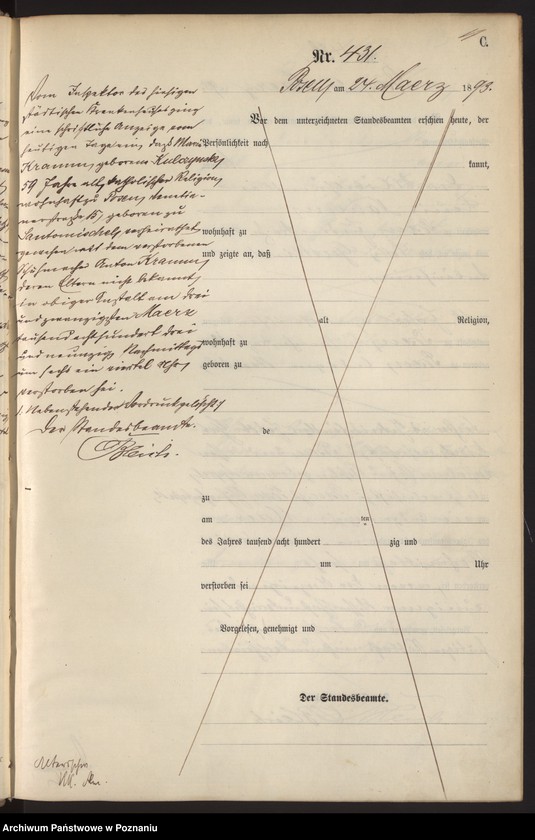 C.
Nr. 431.
Posen am 24. Maerz 1893.
Vom Inspektor des hiesigen
städtischen Krankenhauses ging
eine schriftliche Anzeige vom
heutigen Tage ein, daß Marie
Kramm, geborene Kulczynska,
59 Jahre alt, katholischer Religion,
wohnhaft zu Posen, Venetia-
nerstraße 15, geboren zu
Santomischel, verheirathet
gewesen mit dem verstorbenen
Schuhmacher Anton Kramm,
deren Eltern nicht bekannt,
in obiger Anstalt am drei
und zwanzigsten Maerz
tausend acht hundert drei
und neunzig Nachmittags
um sechs ein viertel Uhr,
verstorben sei.
Nebenstehender Vordruck gelöscht
Der Standesbeamte.
Vor dem unterzeichneten Standesbeamten erschien heute, der
Persönlichkeit nach
kannt,
wohnhaft zu
und zeigte an, daß
alt Religion,
wohnhaft zu
geboren zu
de
zu
am ten
des Jahres tausend acht hundert zig und
um Uhr
verstorben sei
Vorgelesen, genehmigt und
Der Standesbeamte.
Archiwum Państwowe w Poznaniu